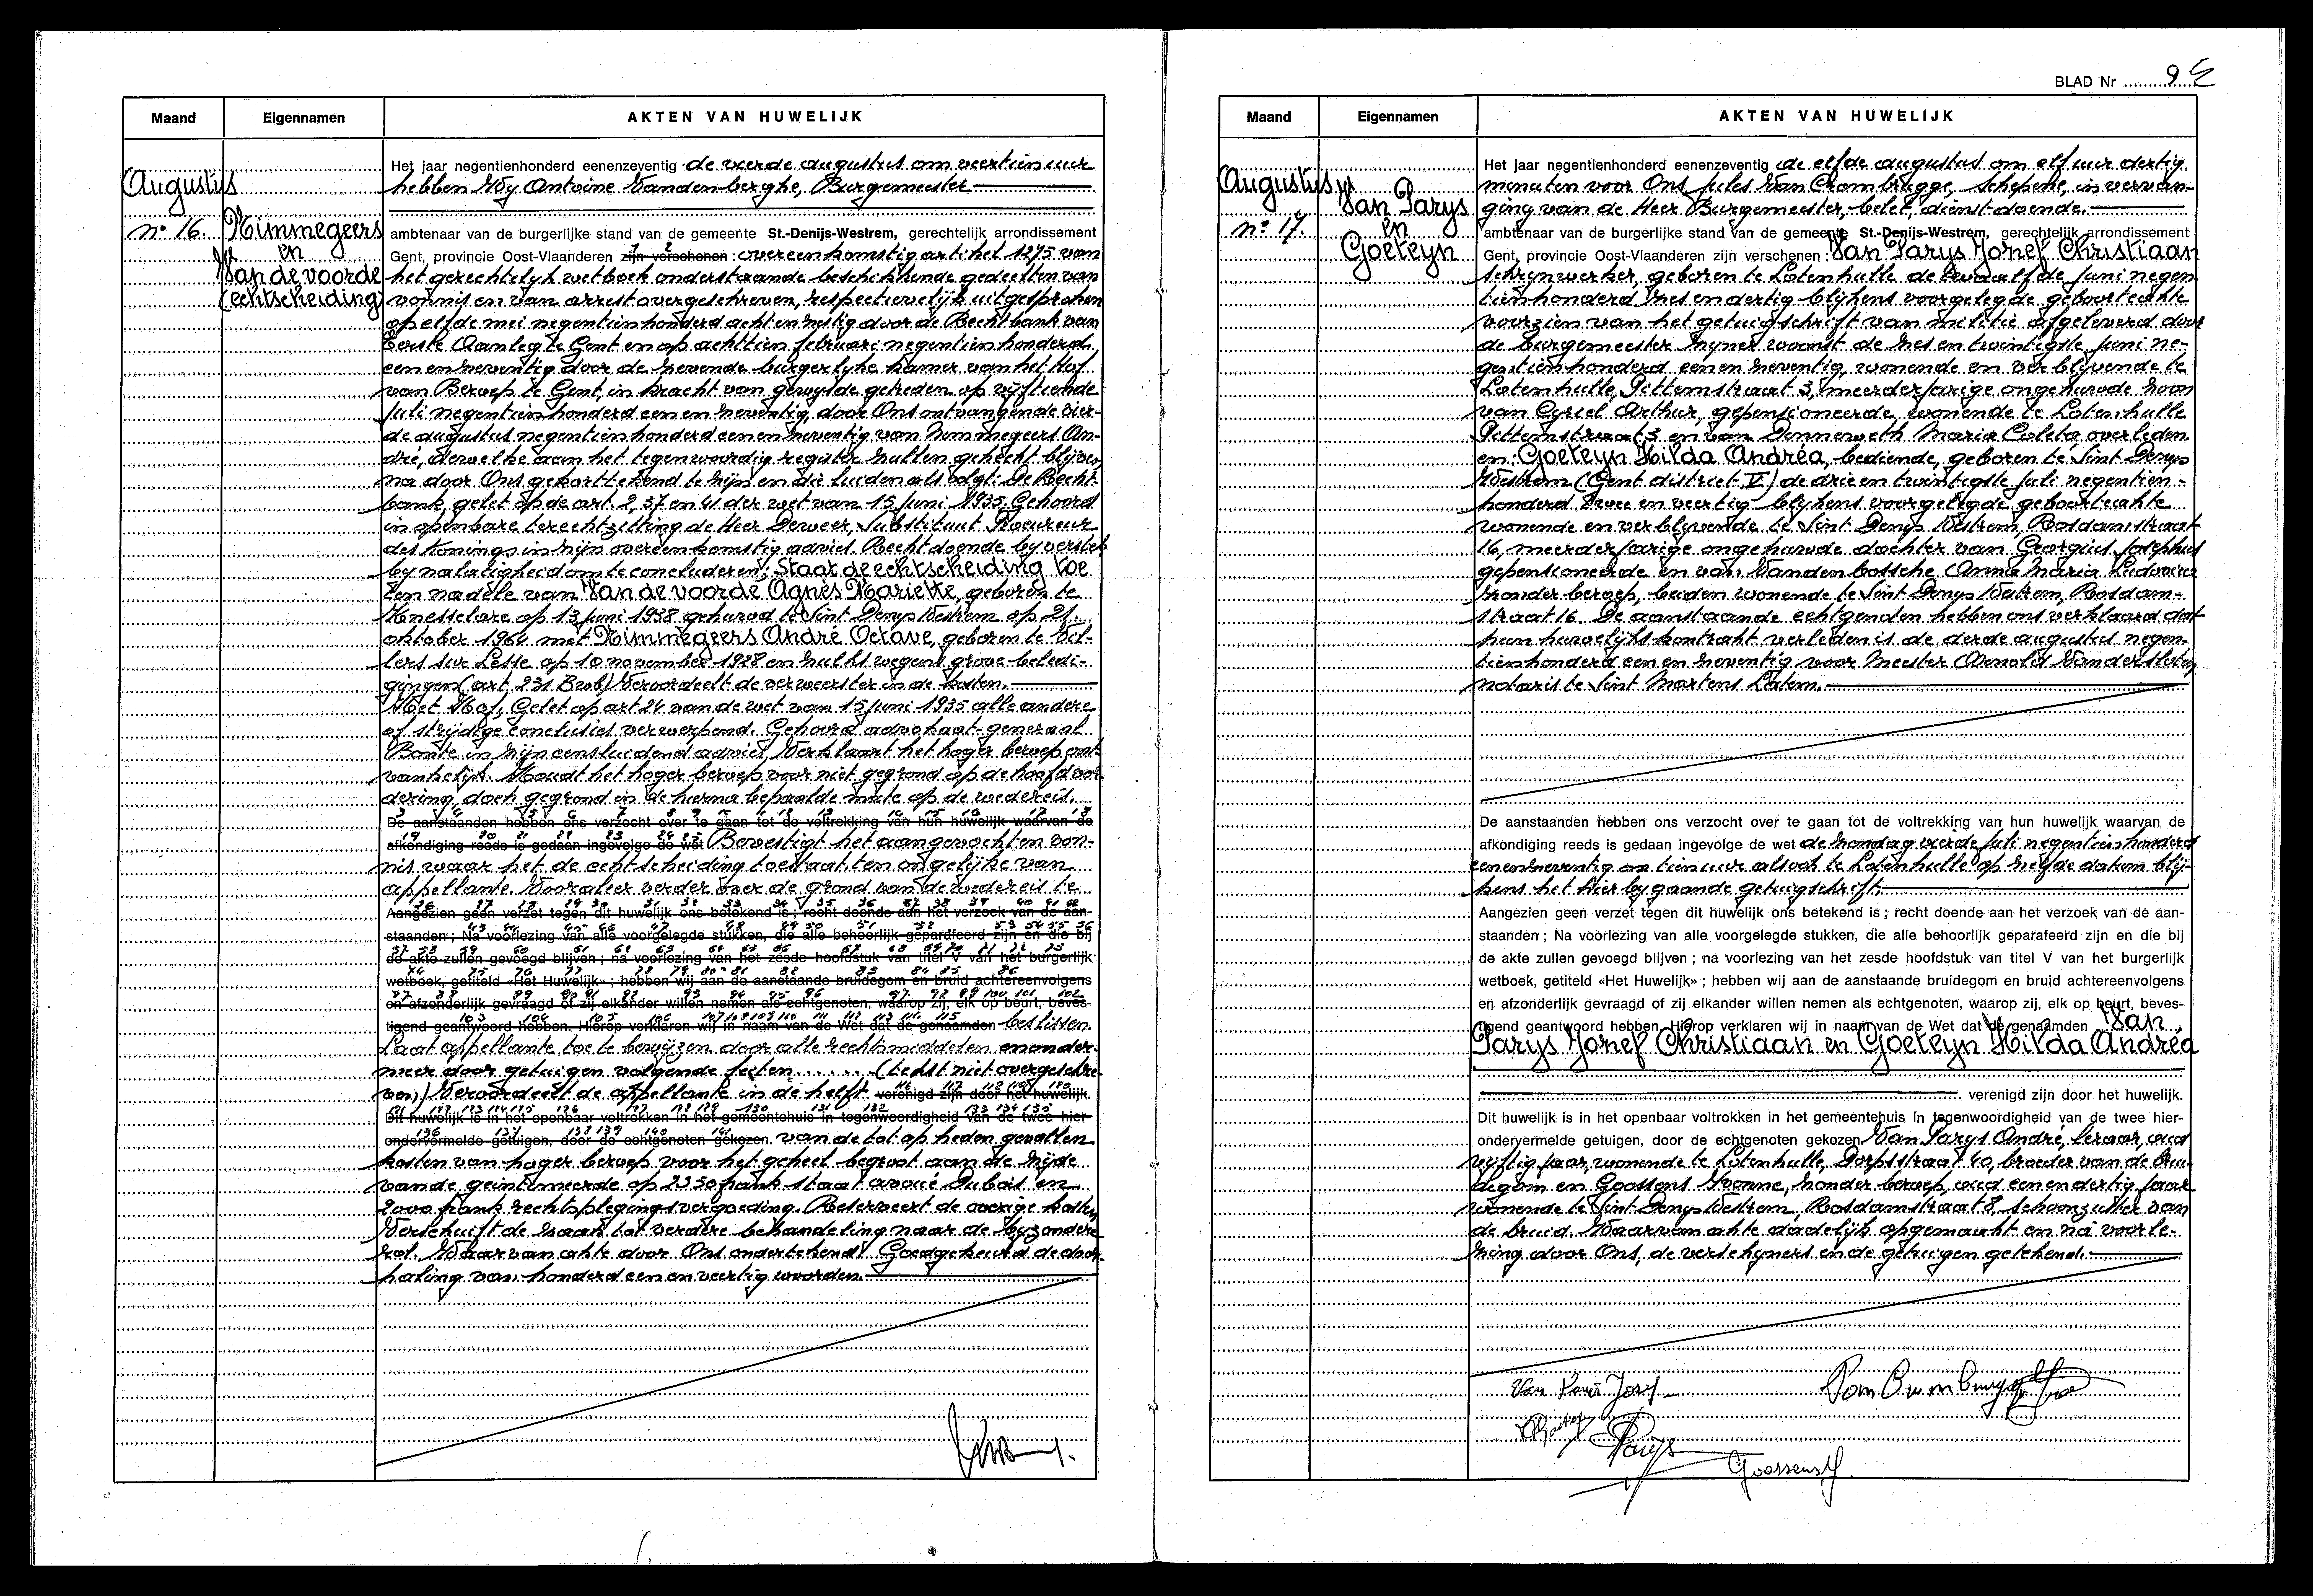 Maand
Eigennamen
AKTEN VAN HUWELIJK
Augustus
nº 16.
Nimmegeers
en
Van de voorde
(echtscheiding)
Het jaar negentienhonderd eenenzeventig de vierde augustus om veertien uur
hebben Wij Antoine Vanden berghe, Burgemeester
ambtenaar van de burgerlijke stand van de gemeente St.-Denijs-Westrem, gerechtelijk arrondissement
Gent, provincie Oost-Vlaanderen zijn verschenen : overeenkomstig artikel 1275 van
het gerechtelijk wetboek onderstaande beschikkende gedeelten van
vonnis en van arrest overgeschreven, respectievelijk uitgesproken
op elfde mei negentienhonderd achtenzestig door de Rechtbank van
Eerste Aanleg te Gent en op achttien februari negentienhonderd
een en zeventig door de zevende burgerlijke kamer van het Hof
van Beroep te Gent, in kracht van gewijsde getreden op vijftiende
juli negentienhonderd een en zeventig, door Ons ontvangen de vier-
de augustus negentienhonderd een en zeventig van Nimmegeers An-
dré, dewelke aan het tegenwoordig register zullen gehecht blijven
na door Ons gekorttekend te zijn en die luiden als volgt: De Recht-
bank, gelet op de art. 2, 37 en 41 der wet van 15 juni 1935. Gehoord
in openbare terechtzitting de Heer Deweer, Substituut Procureur
des Konings in zijn overeenkomstig advies. Recht doende bij verstek
bij nalatigheid om te concluderen: Staat de echtscheiding toe
ten nadele van Van de voorde Agnes Mariette, geboren te
Knesselare op 13 juni 1938 gehuwd te Sint Denijs Westrem op 21
oktober 1964 met Nimmegeers André Octave, geboren te Vil-
lers sur Lesse op 10 november 1928 en zulks wegens grove beledi-
gingen (art. 231 Bwb) Veroordeelt de verweerster in de kosten.
Het Hof, Gelet op art 24 van de wet van 15 juni 1935 alle andere
of strijdige conclusies verwerpend. Gehoord advokaat-generaal
Bonte in zijn eensluidend advies, Verklaart het hoger beroep ont-
vankelijk. Houdt het hoger beroep voor niet gegrond op de hoofdvor-
dering, doch gegrond in de hierna bepaalde mate op de wedereis.
De aanstaanden hebben ons verzocht over te gaan tot de voltrekking van hun huwelijk waarvan de
afkondiging reeds is gedaan ingevolge de wet Bevestigt het aangevochten von-
nis waar het de echtscheiding toestaat ten ongelijke van
appellante. Vooraleer verder over de grond van de wedereis te
Aangezien geen verzet tegen dit huwelijk ons betekend is ; recht doende aan het verzoek van de aan-
staanden ; Na voorlezing van alle voorgelegde stukken, die alle behoorlijk geparafeerd zijn en die bij
de akte zullen gevoegd blijven ; na voorlezing van het zesde hoofdstuk van titel V van het burgerlijk
wetboek, getiteld «Het Huwelijk» ; hebben wij aan de aanstaande bruidegom en bruid achtereenvolgens
en afzonderlijk gevraagd of zij elkander willen nemen als echtgenoten, waarop zij, elk op beurt, beves-
tigend geantwoord hebben. Hierop verklaren wij in naam van de Wet dat de genaamden beslissen.
Laat appellante toe te bewijzen door alle rechtsmiddelen en onder
meer door getuigen volgende feiten ...... (tekst niet overgeschre-
ven) Veroordeelt de appellante in de helft verenigd zijn door het huwelijk.
Dit huwelijk is in het openbaar voltrokken in het gemeentehuis in tegenwoordigheid van de twee hier-
ondervermelde getuigen, door de echtgenoten gekozen. van de tot op heden gevallen
kosten van hoger beroep voor het geheel begroot aan de zijde
van de geïntimeerde op 2350 frank staat avoué Dubois en
2000 frank rechtsplegingsvergoeding. Reserveert de overige kosten
Verschuift de zaak tot verdere behandeling naar de bijzondere
rol. Waarvan akte door Ons ondertekend. Goedgekeurd de door-
haling van honderd een en veertig woorden.
BLAD Nr 9
Maand
Eigennamen
AKTEN VAN HUWELIJK
Augustus
nº 17.
Van Parys
en
Goeteyn
Het jaar negentienhonderd eenenzeventig de elfde augustus om elf uur dertig
minuten voor Ons Jules Van Crombrugge, Schepene, in vervan-
ging van de Heer Burgemeester, belet, dienstdoende.
ambtenaar van de burgerlijke stand van de gemeente St.-Denijs-Westrem, gerechtelijk arrondissement
Gent, provincie Oost-Vlaanderen zijn verschenen : Van Parys Jozef Christiaan
schrijnwerker, geboren te Lotenhulle de twaalfde juni negen
tienhonderd zes en dertig blijkens voorgelegde geboorteakte
voorzien van het getuigschrift van militie afgeleverd door
de burgemeester zijner woonst de zes en twintigste juni ne-
gentienhonderd een en zeventig, wonende en verblijvende te
Lotenhulle, Pittemstraat 3, meerderjarige ongehuwde zoon
van Cyriel Arthur, gepensioneerde, wonende te Lotenhulle
Pittemstraat 3 en van Dennerweth Maria Coleta overleden
en: Goeteyn Hilda Andréa, bediende, geboren te Sint Denys
Westrem (Gent district V) de drie en twintigste juli negentien-
honderd twee en veertig blijkens voorgelegde geboorteakte
wonende en verblijvende te Sint Denijs Westrem, Rosdamstraat
16, meerderjarige ongehuwde dochter van Georgius Josephus
gepensioneerde en van Vandenbossche Anna Maria Ludovica
zonder beroep, beiden wonende te Sint Denijs Westrem, Rosdam-
straat 16. De aanstaande echtgenoten hebben ons verklaard dat
hun huwelijkskontrakt verleden is de derde augustus negen-
tienhonderd een en zeventig voor Meester Arnold Vandersloten
notaris te Sint Martens Latem.
De aanstaanden hebben ons verzocht over te gaan tot de voltrekking van hun huwelijk waarvan de
afkondiging reeds is gedaan ingevolge de wet de zondag vierde juli negentienhonderd
eenenzeventig om tien uur alsook te Lotenhulle op zelfde datum blij-
kens het hier bijgaande getuigschrift.
Aangezien geen verzet tegen dit huwelijk ons betekend is ; recht doende aan het verzoek van de aan-
staanden ; Na voorlezing van alle voorgelegde stukken, die alle behoorlijk geparafeerd zijn en die bij
de akte zullen gevoegd blijven ; na voorlezing van het zesde hoofdstuk van titel V van het burgerlijk
wetboek, getiteld «Het Huwelijk» ; hebben wij aan de aanstaande bruidegom en bruid achtereenvolgens
en afzonderlijk gevraagd of zij elkander willen nemen als echtgenoten, waarop zij, elk op beurt, beves-
tigend geantwoord hebben. Hierop verklaren wij in naam van de Wet dat de genaamden Van
Parys Jozef Christiaan en Goeteyn Hilda Andréa
verenigd zijn door het huwelijk.
Dit huwelijk is in het openbaar voltrokken in het gemeentehuis in tegenwoordigheid van de twee hier-
ondervermelde getuigen, door de echtgenoten gekozen Van Parys André, leraar, oud
vijftig jaar, wonende te Lotenhulle, Dorpsstraat 40, broeder van de brui-
degom en Goossens Yvonne, zonder beroep, oud een en dertig jaar
wonende te Sint Denijs Westrem, Rosdamstraat 8, schoonzuster van
de bruid. Waarvan akte dadelijk opgemaakt en na voorle-
zing door Ons, de verschijners en de getuigen getekend.
Parys
Goossens Y